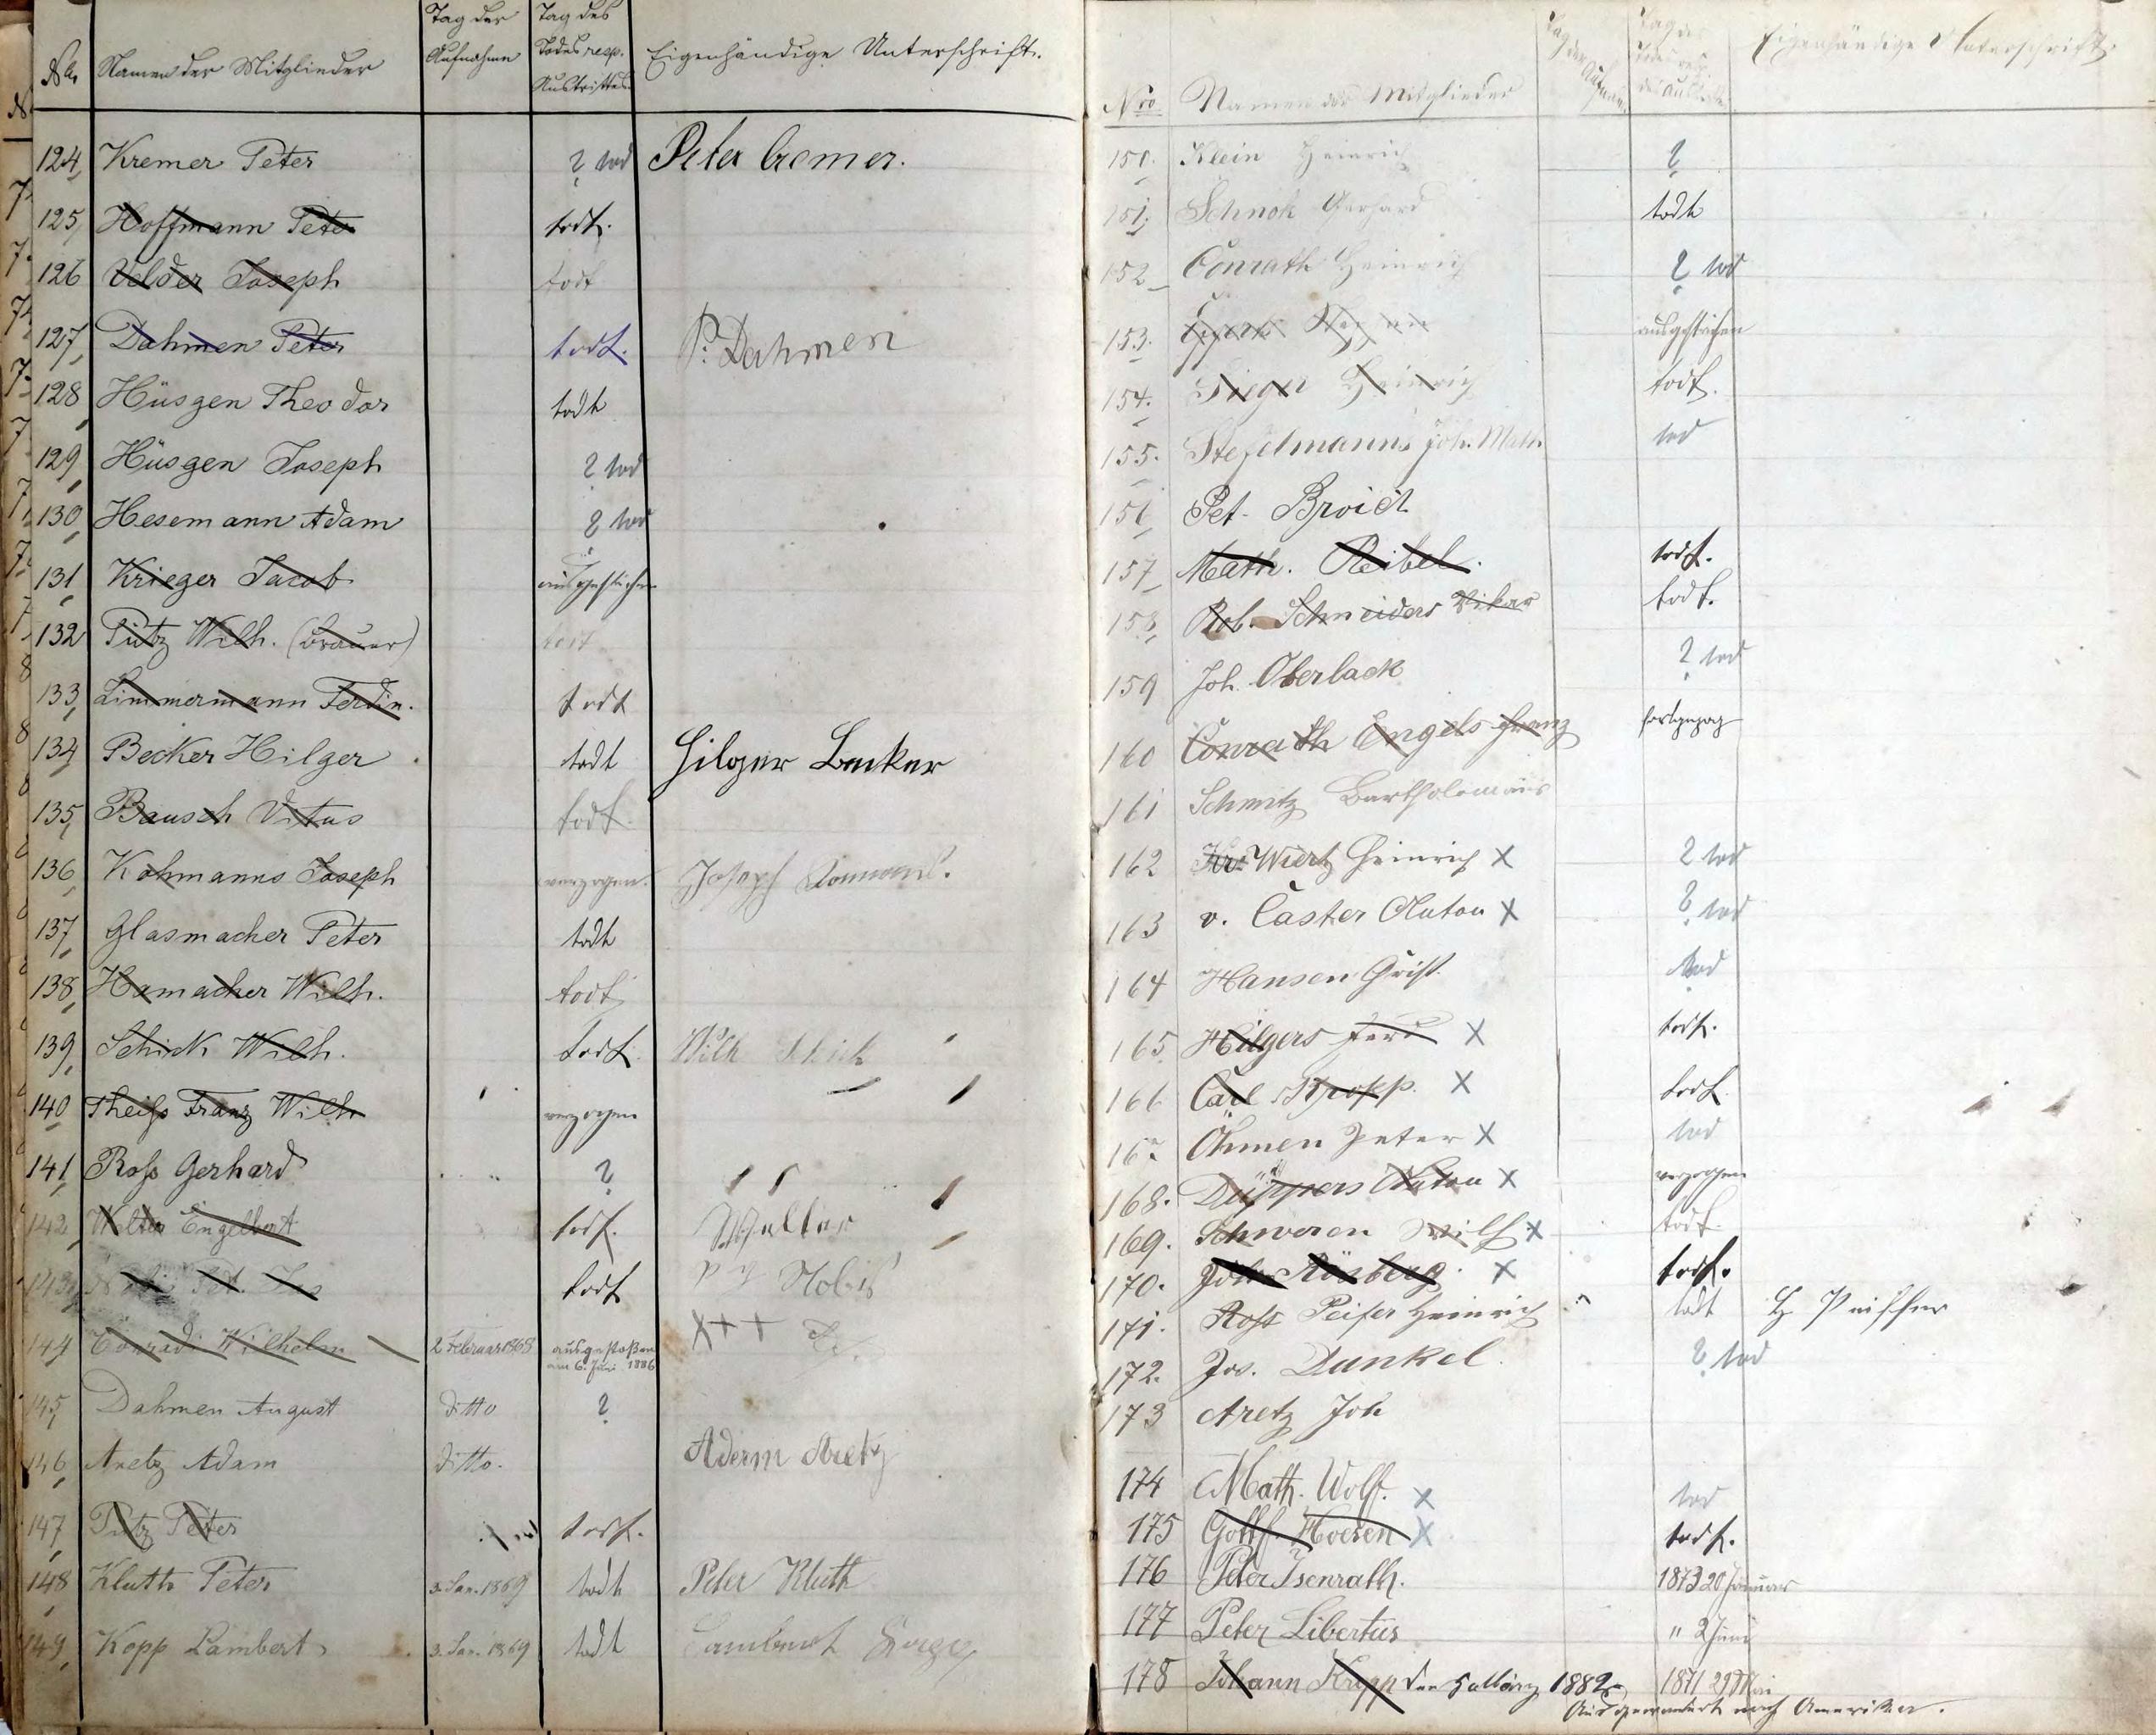 No. Namen der Mitglieder Tag der Aufnahme Tag des Todes resp. Austrittes Eigenhändige Unterschrift.
124 Kremer Peter ? tod Peter Cremer.
125 Hoffmann Peter todt.
126 Velder Joseph todt
127 Dahmen Peter todt. P. Dahmen
128 Hüsgen Theodor todt
129 Hüsgen Joseph ? tod
130 Hesemann Adam ? tod
131 Krieger Jacob ausgestrichen
132 Pütz Wilh. (Brauer) todt
133 Zimmermann Ferdin. todt
134 Becker Hilger todt Hilger Becker
135 Bausch Vitus todt.
136 Kohmanns Joseph verzogen. Joseph
137 Glasmacher Peter todt
138 Hamacher Wilh. todt
139 Schick Wilh. todt. Wilh Schick
140 Theiß Franz Wilh verzogen
141 Roß Gerhard ?
142 Wolter Engelbert todt. Wolter
143 todt Nobis
144 Conradi Wilhelm 2 Februar 1868 ausgestoßen am 6. Juni 1886 XXX
145 Dahmen August ditto ?
146 Aretz Adam ditto. Adam Aretz
147 Pütz Peter todt.
148 Kluth Peter 3. Jan. 1869 todt Peter Kluth
149 Kopp Lambert 3. Jan. 1869 todt Lambert
Nro Namen der Mitglieder Tag der Aufnahme Tag des Todes resp. des Austritts Eigenhändige Unterschrift
150. Klein Heinrich ?
151. Schnok Gerhard todt
152 Conrath Heinrich ? tod
153. ausgestrichen
154. Sieger Heinrich todt.
155. Steffelmanns Joh. Math. tod
156 Pet. Broich
157 Math. Reibel. todt.
158 Rob. Schneiders Vikar todt.
159 Joh. Oberlack ? tod
160 Conrath Engels Franz fortgezog
161 Schmitz Bartholomäus
162 Wiertz Heinrich X ? tod
163 v. Caster Anton X ? tod
164 Hansen Christ. tod
165. Hilgers Ferd X todt.
166 Carl Kropp. X todt.
167 Öhmen Peter X tod
168. Düppers Anton X verzogen
169. Schweren Wilh X todt.
170. Joh. Rösberg. X todt.
171. Peifer Heinrich todt H Peiffer
172. Jos. Dunkel. ? tod
173 Aretz Joh
174 Math. Wolff. X tod
175 Gottf. Hoesen X todt.
176 Peter Isenrath. 1873 20 Januar
177 Peter Libertus " 2 Juni
178 Johann Krapp den 5 März 1882 1871 29 Mai
Ausgewandert nach Amerika.